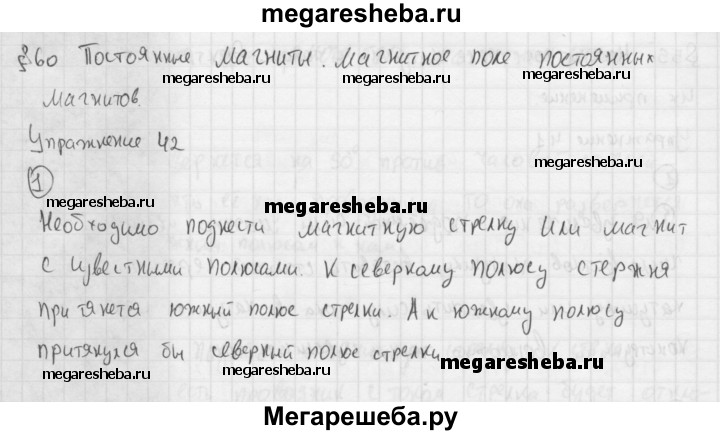 megaresheba.ru
§60 Постоянные магниты. Магнитное поле постоянных
megaresheba.ru megaresheba.ru
магнитов.
Упражнение 42
megaresheba.ru
1
megaresheba.ru megaresheba.ru
Необходимо поднести магнитную стрелку или магнит
с известными полюсами. К северному полюсу стержня
megaresheba.ru megaresheba.ru
притянется южный полюс стрелки. А к южному полюсу
притянулся бы северный полюс стрелки
megaresheba.ru
megaresheba.ru megaresheba.ru
Мегарешеба.ру